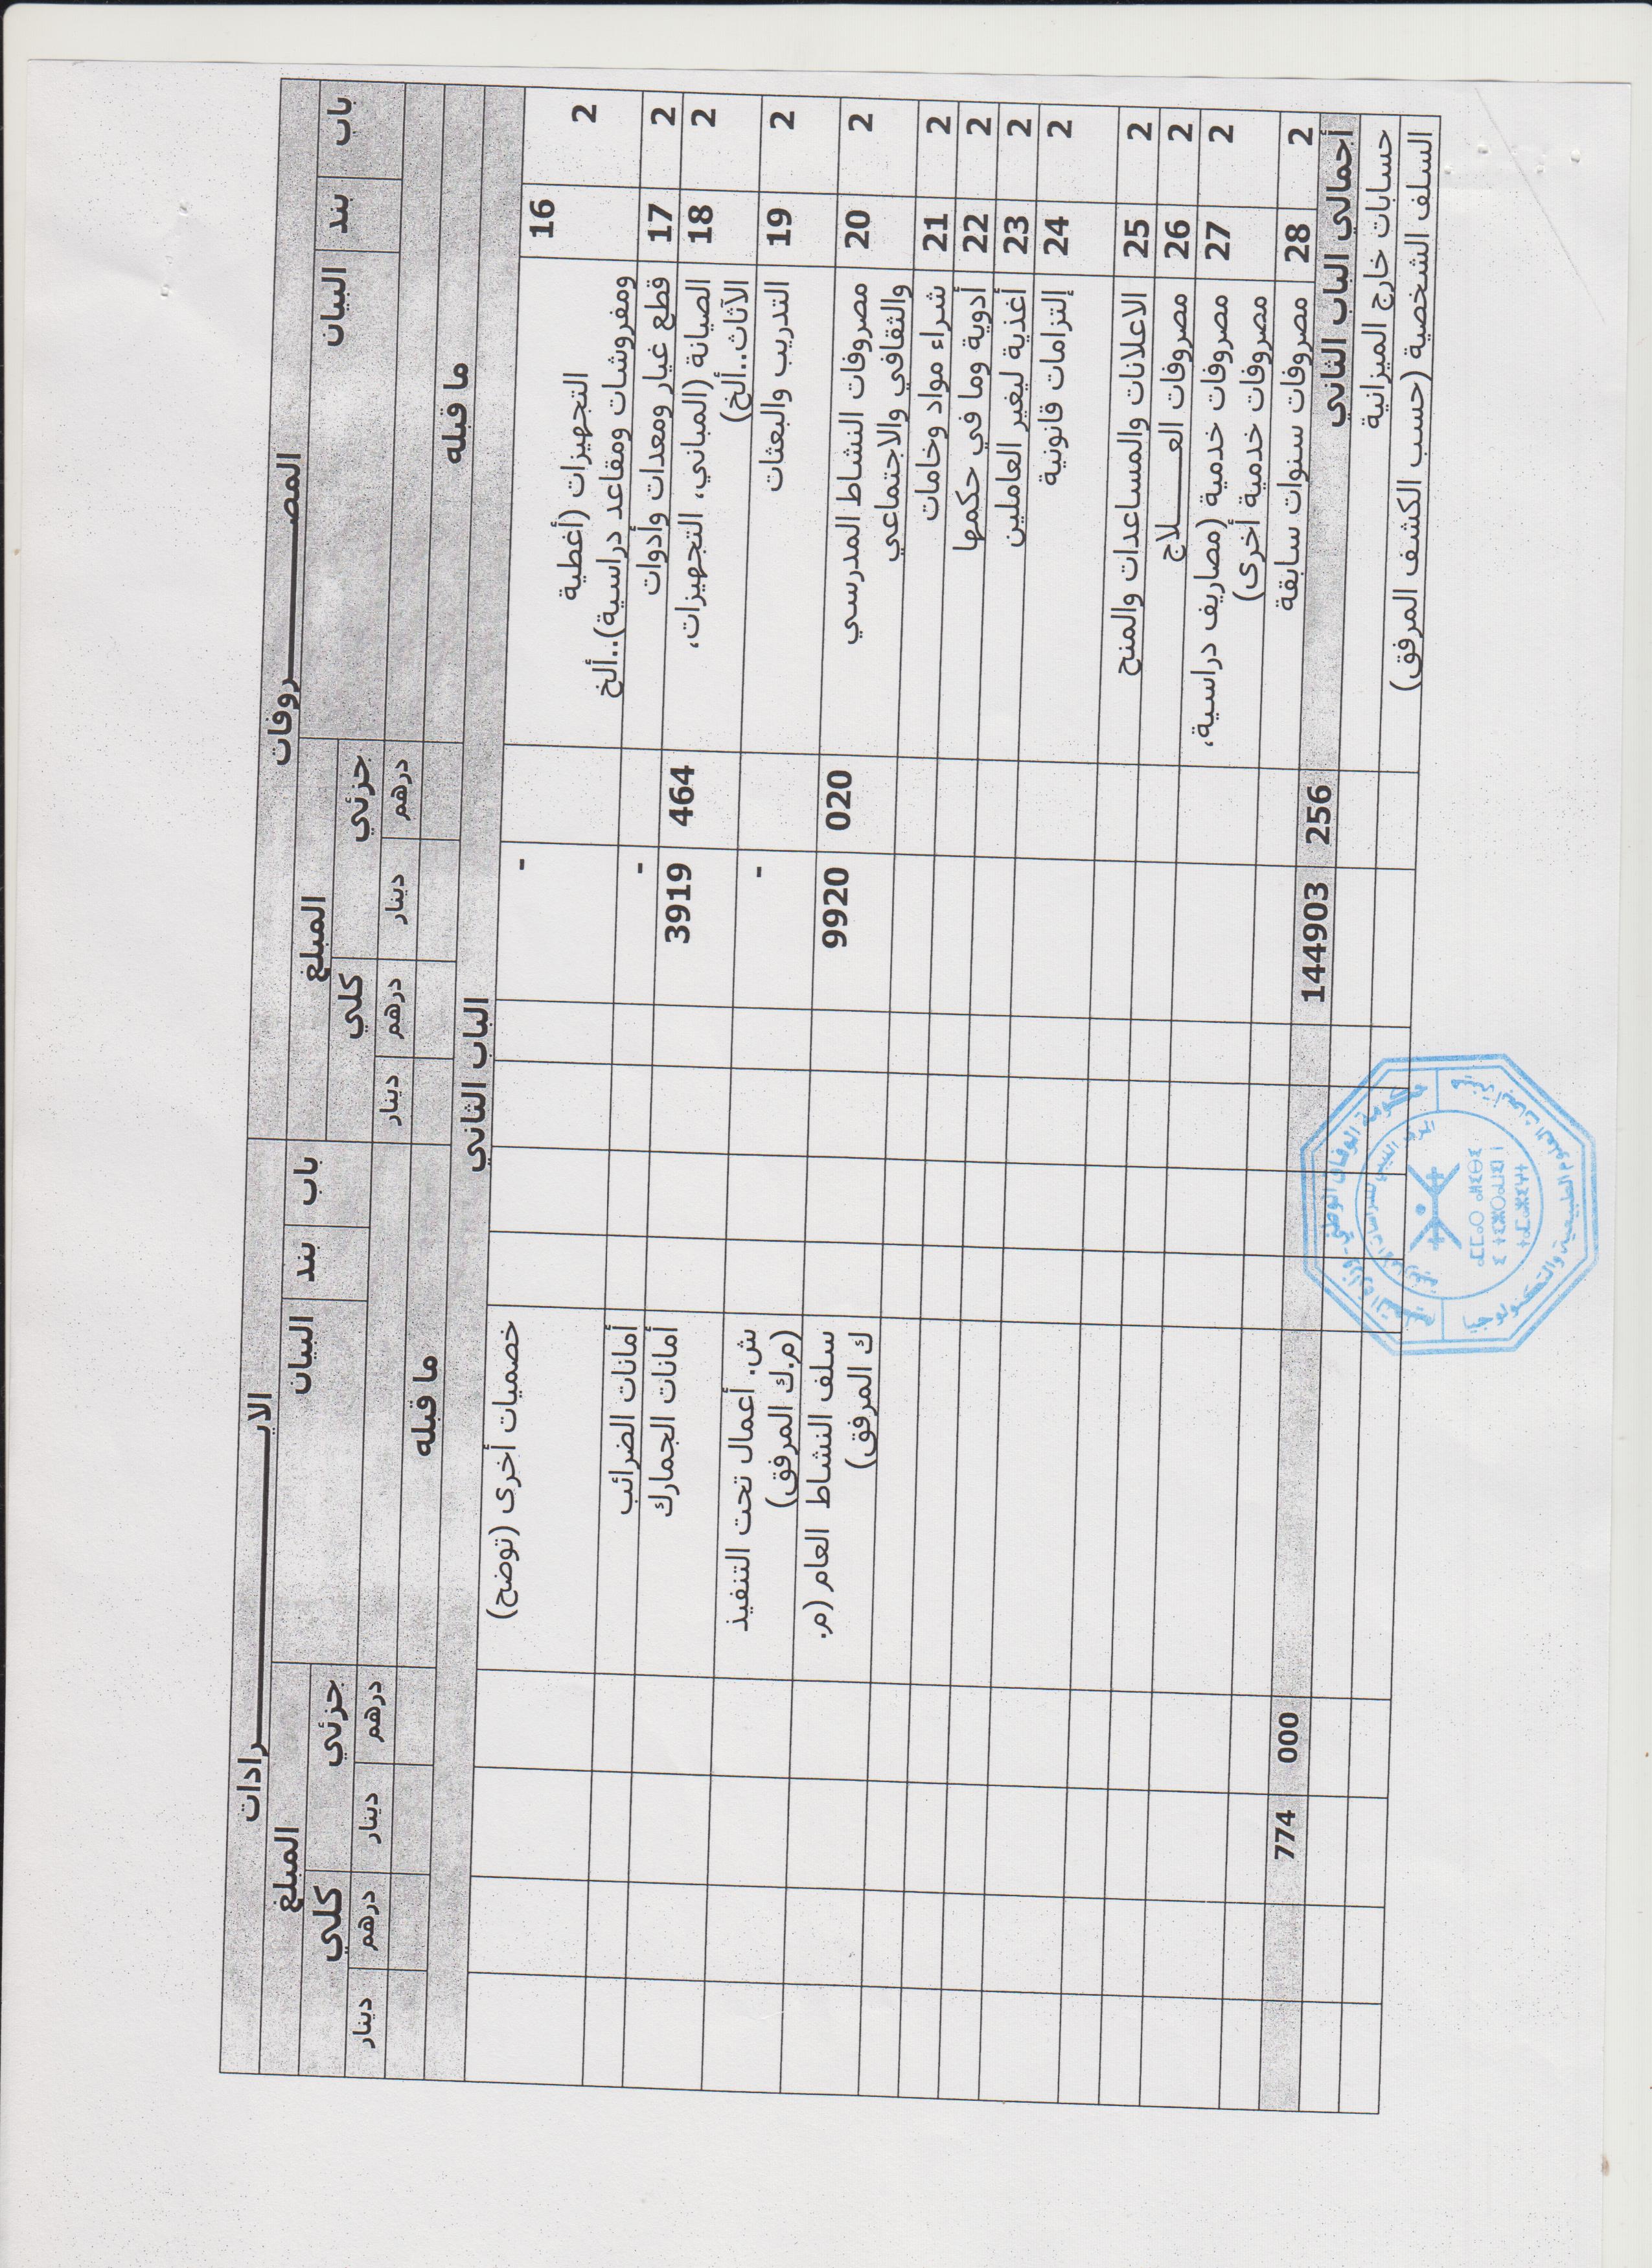 المصـــــــــــــروفات
باب بند البيان المبلغ
جزئي كلي
درهم دينار درهم دينار
ما قبله
الايـــــــــــــــــرادات
باب بند البيان المبلغ
جزئي كلي
درهم دينار درهم دينار
ما قبله
الباب الثاني
2 16 التجهيزات (أغطية
ومفروشات ومقاعد دراسية)..ألخ - خصميات أخرى (توضح)
2 17 قطع غيار ومعدات وأدوات - أمانات الضرائب
2 18 الصيانة (المباني، التجهيزات، 464 3919 أمانات الجمارك
الآثاث..ألخ)
2 19 التدريب والبعثات - ش. أعمال تحت التنفيذ
(م.ك المرفق)
2 20 مصروفات النشاط المدرسي 020 9920 سلف النشاط العام (م.
والثقافي والاجتماعي ك المرفق)
2 21 شراء مواد وخامات
2 22 أدوية وما في حكمها
2 23 أغذية ليغير العاملين
2 24 إلتزامات قانونية
2 25 الاعلانات والمساعدات والمنح
2 26 مصروفات العـــــلاج
2 27 مصروفات خدمية (مصاريف دراسية،
مصروفات خدمية أخرى)
2 28 مصروفات سنوات سابقة
أجمالي الباب الثاني 256 144903 000 774
حسابات خارج الميزانية
السلف الشخصية (حسب الكشف المرفق)
حكومة الوفاق الوطني - وزارة التعليم